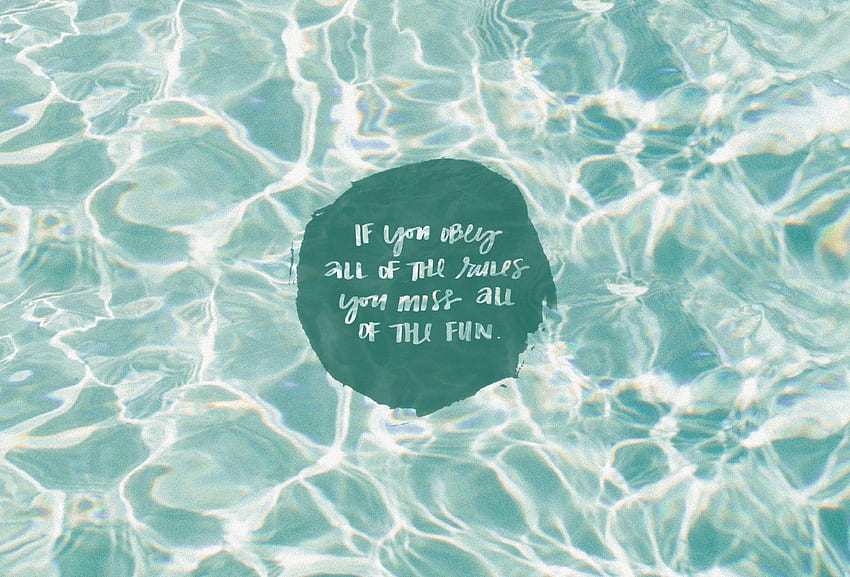 IF you obey
all of the rules
you miss all
of the fun.